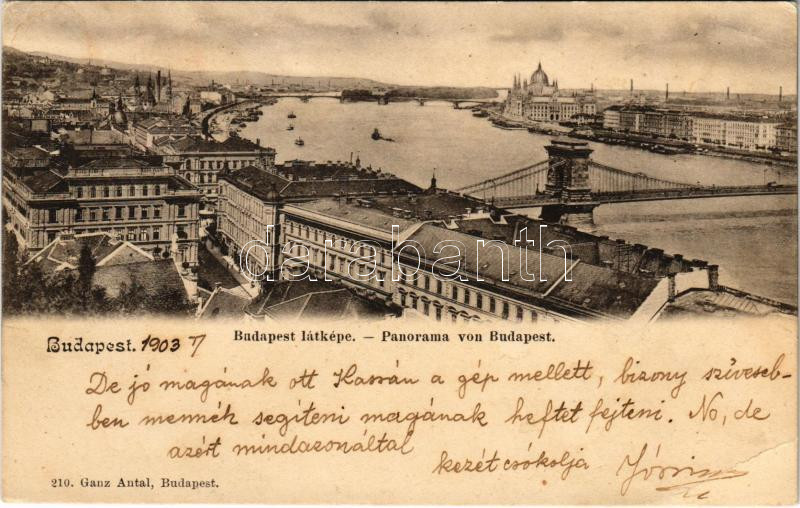 darabanth
Budapest. 1903 7
Budapest látképe. – Panorama von Budapest.
De jó magának ott Kassán a gép mellett, bizony szíveseb-
ben mennék segíteni magának heftet fejteni. No, de
azért mindazonáltal
kezét csókolja
210. Ganz Antal, Budapest.